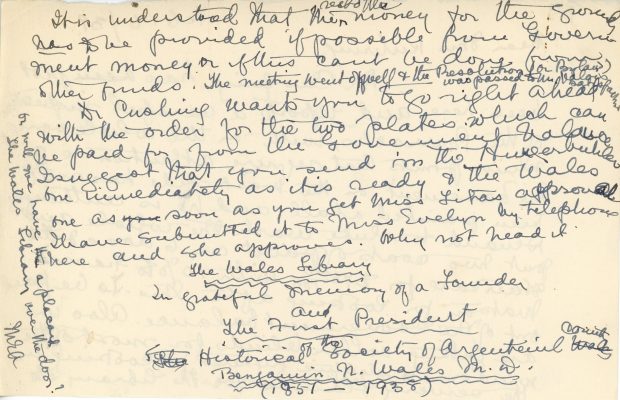 rest of the
It is understood that the money for the grounds
has to be provided if possible from Govern
ment money or if this can't be done from
other funds. The meeting went off well & the Resolution for
was passed to my
Dr Cushing wants you to go right ahead
with the order for the two plates which can
be paid for from the Government balance
I suggest that you send in the
one immediately as it is ready & the Wales
one as soon as you get Miss Lita's approval
I have submitted it to Miss Evelyn by telephone
here and she approves. Why not head it
The Wales Library
In grateful memory of a Founder
and
The First President
of the
Historical Society of Argenteuil
Benjamin N. Wales M.D.
(1851 – 1938)
or will we have the a placard
The Wales Library over the door?